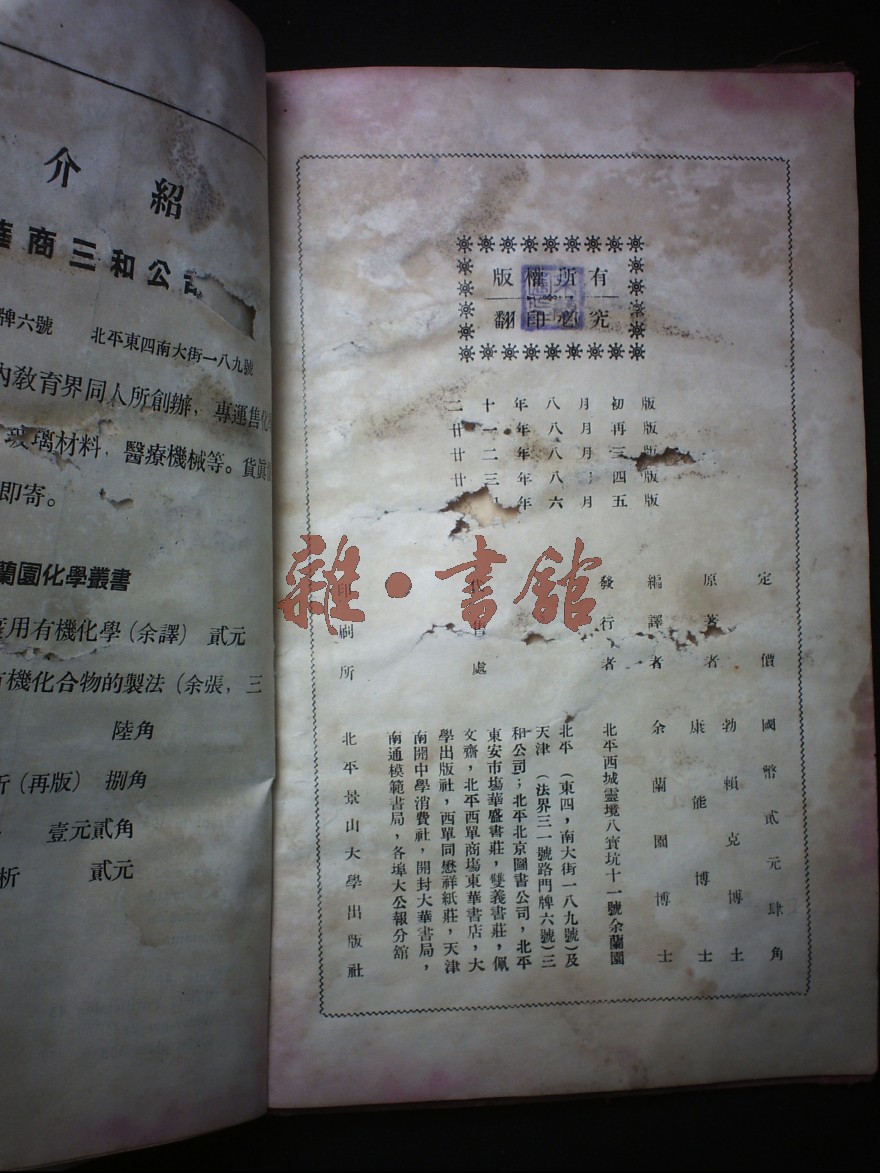 介紹
商三和公司
牌六號 北平東四南大街一八九號
內敎育界同人所創辦,專運售化
玻璃材料,醫療機械等。貨眞
即寄。
蘭園化學叢書
用有機化學(余譯) 貳元
機化合物的製法(余張,三
陸角
析(再版) 捌角
壹元貳角
析 貳元
版權所有
翻印必究
二十年八月初版
廿一年八月再版
廿二年八月三版
廿三年八月四版
廿年六月五版
定價 國幣貳元肆角
原著者 勃賴克博士
康能博士
編譯者 余蘭園博士
發行者 北平西城靈境八寶坑十一號余蘭園
代售處 北平(東四,南大街一八九號)及
天津(法界三一號路門牌六號)三
和公司;北平北京圖書公司,北平
東安市塲華盛書莊,雙義書莊,佩
文齋,北平西單商塲東華書店,大
學出版社,西單同懋祥紙莊,天津
南開中學消費社,開封大華書局,
南通模範書局,各埠大公報分舘
印刷所 北平景山大學出版社
雜·書舘